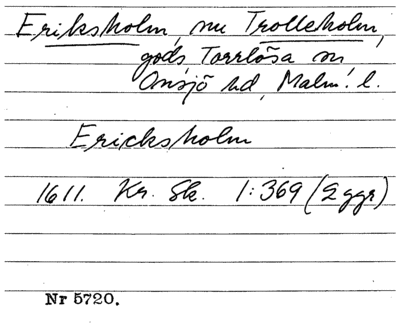 Eriksholm, nu Trolleholm,
gods, Torrlösa sn,
Onsjö hd, Malm. l.
Ericksholm
1611. Kr. Sk. 1:369 (2 ggr)
Nr 5720.